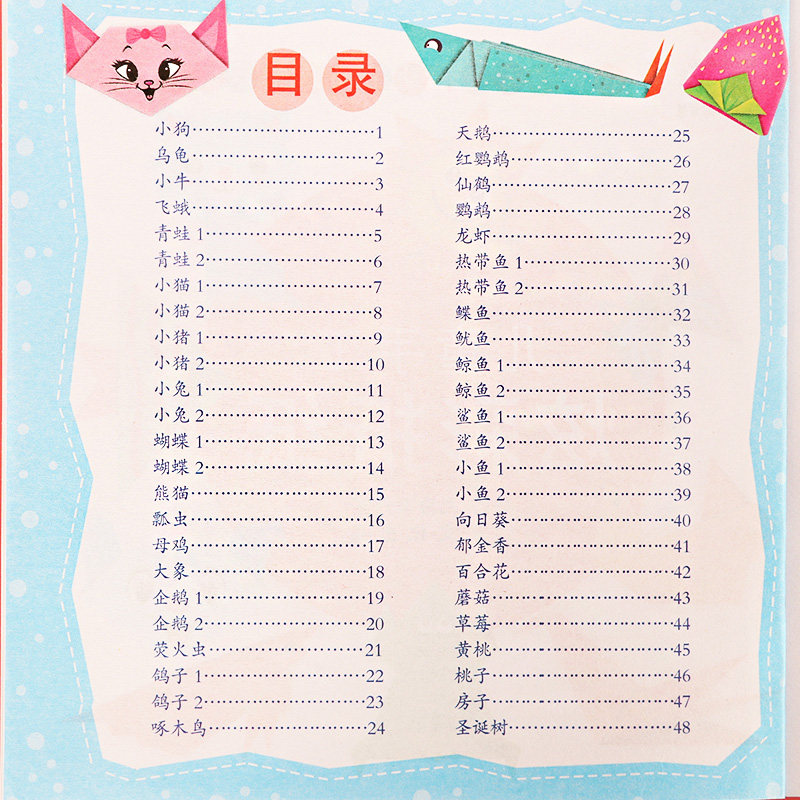 目录
小狗……………………………1
乌龟……………………………2
小牛……………………………3
飞蛾……………………………4
青蛙 1…………………………5
青蛙 2…………………………6
小猫 1…………………………7
小猫 2…………………………8
小猪 1…………………………9
小猪 2…………………………10
小兔 1…………………………11
小兔 2…………………………12
蝴蝶 1…………………………13
蝴蝶 2…………………………14
熊猫……………………………15
瓢虫……………………………16
母鸡……………………………17
大象……………………………18
企鹅 1…………………………19
企鹅 2…………………………20
荧火虫…………………………21
鸽子 1…………………………22
鸽子 2…………………………23
啄木鸟…………………………24
天鹅……………………………25
红鹦鹉…………………………26
仙鹤……………………………27
鹦鹉……………………………28
龙虾……………………………29
热带鱼 1………………………30
热带鱼 2………………………31
鲽鱼……………………………32
鱿鱼……………………………33
鲸鱼 1…………………………34
鲸鱼 2…………………………35
鲨鱼 1…………………………36
鲨鱼 2…………………………37
小鱼 1…………………………38
小鱼 2…………………………39
向日葵…………………………40
郁金香…………………………41
百合花…………………………42
蘑菇……………………………43
草莓……………………………44
黄桃……………………………45
桃子……………………………46
房子……………………………47
圣诞树…………………………48